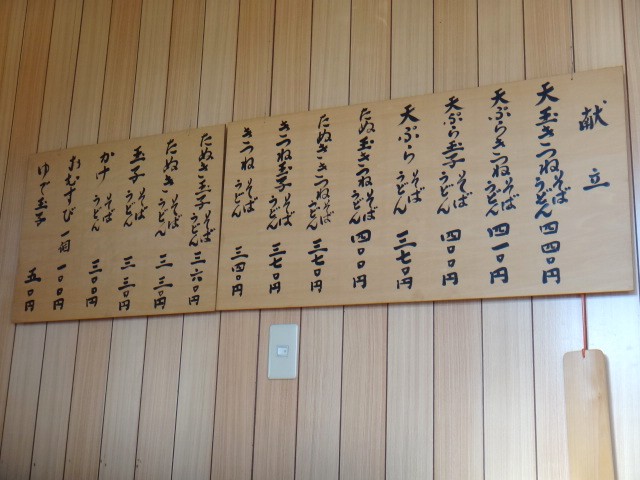 献立
天玉きつねそばうどん 四四0円
天ぷらきつねそばうどん 四一0円
天ぷら玉子そばうどん 四00円
天ぷらそばうどん 三七0円
たぬ玉きつねそばうどん 四00円
たぬききつねそばうどん 三七0円
きつね玉子そばうどん 三七0円
きつねそばうどん 三四0円
たぬき玉子そばうどん 三六0円
たぬきそばうどん 三三0円
玉子そばうどん 三三0円
かけそばうどん 三00円
おむすび一個 一00円
ゆで玉子 五0円